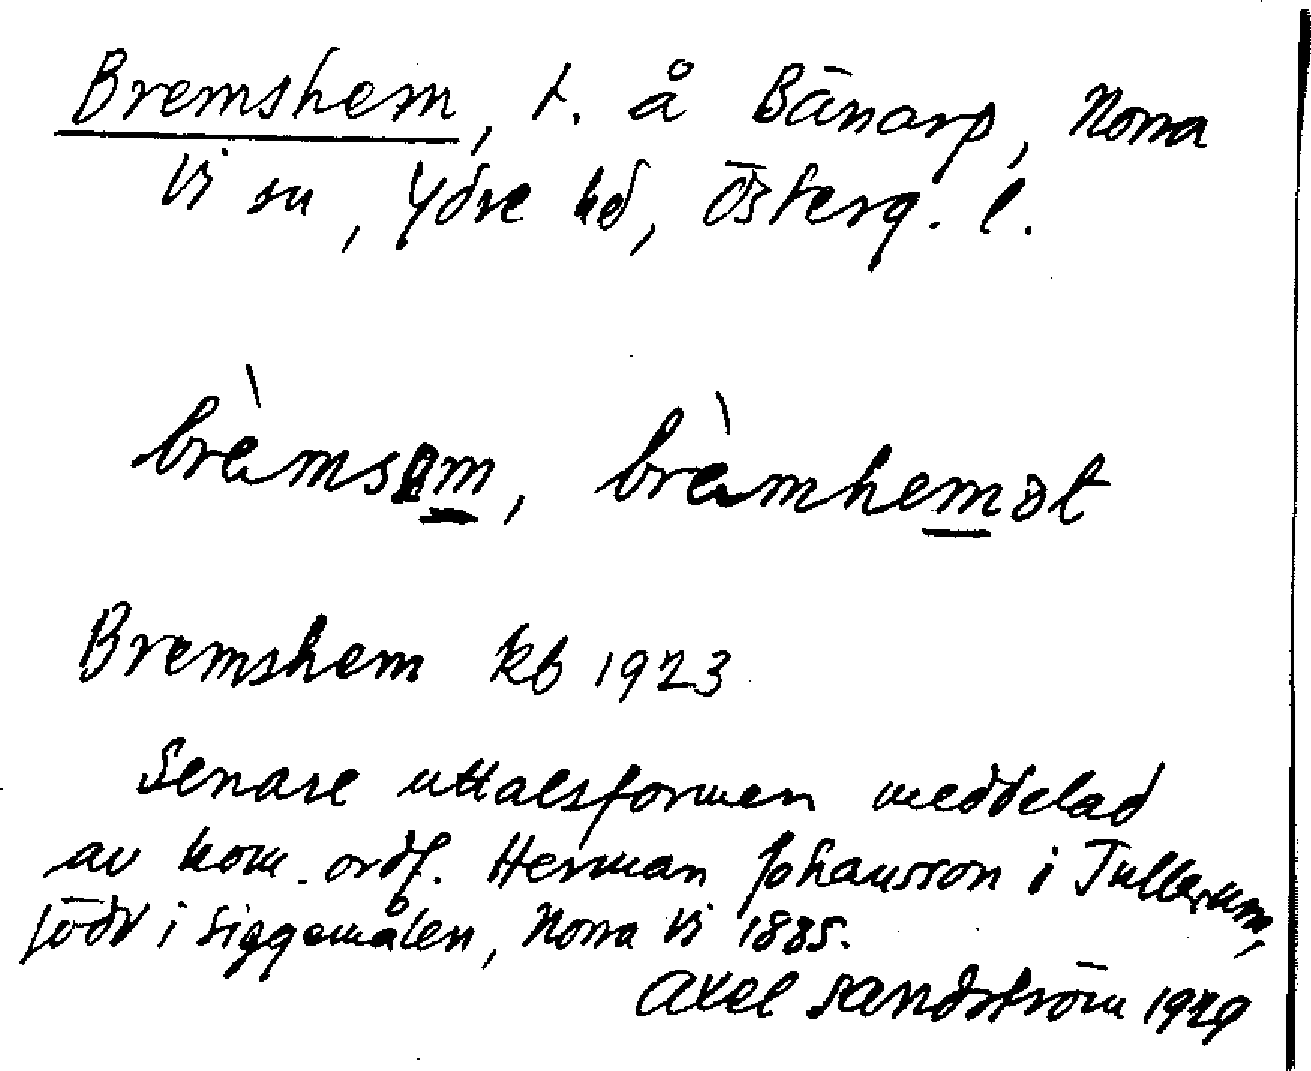 Bremshem, t. å Bänarp, Norra
Vi sn, Ydre hd, Österg. l.
brèmsem, brèmhemət
Bremshem kb 1923
Senare uttalsformen meddelad
av kom. ordf. Herman Johansson i Tullerum,
född i Siggemålen, Norra Vi 1885.
Axel Sandström 1929